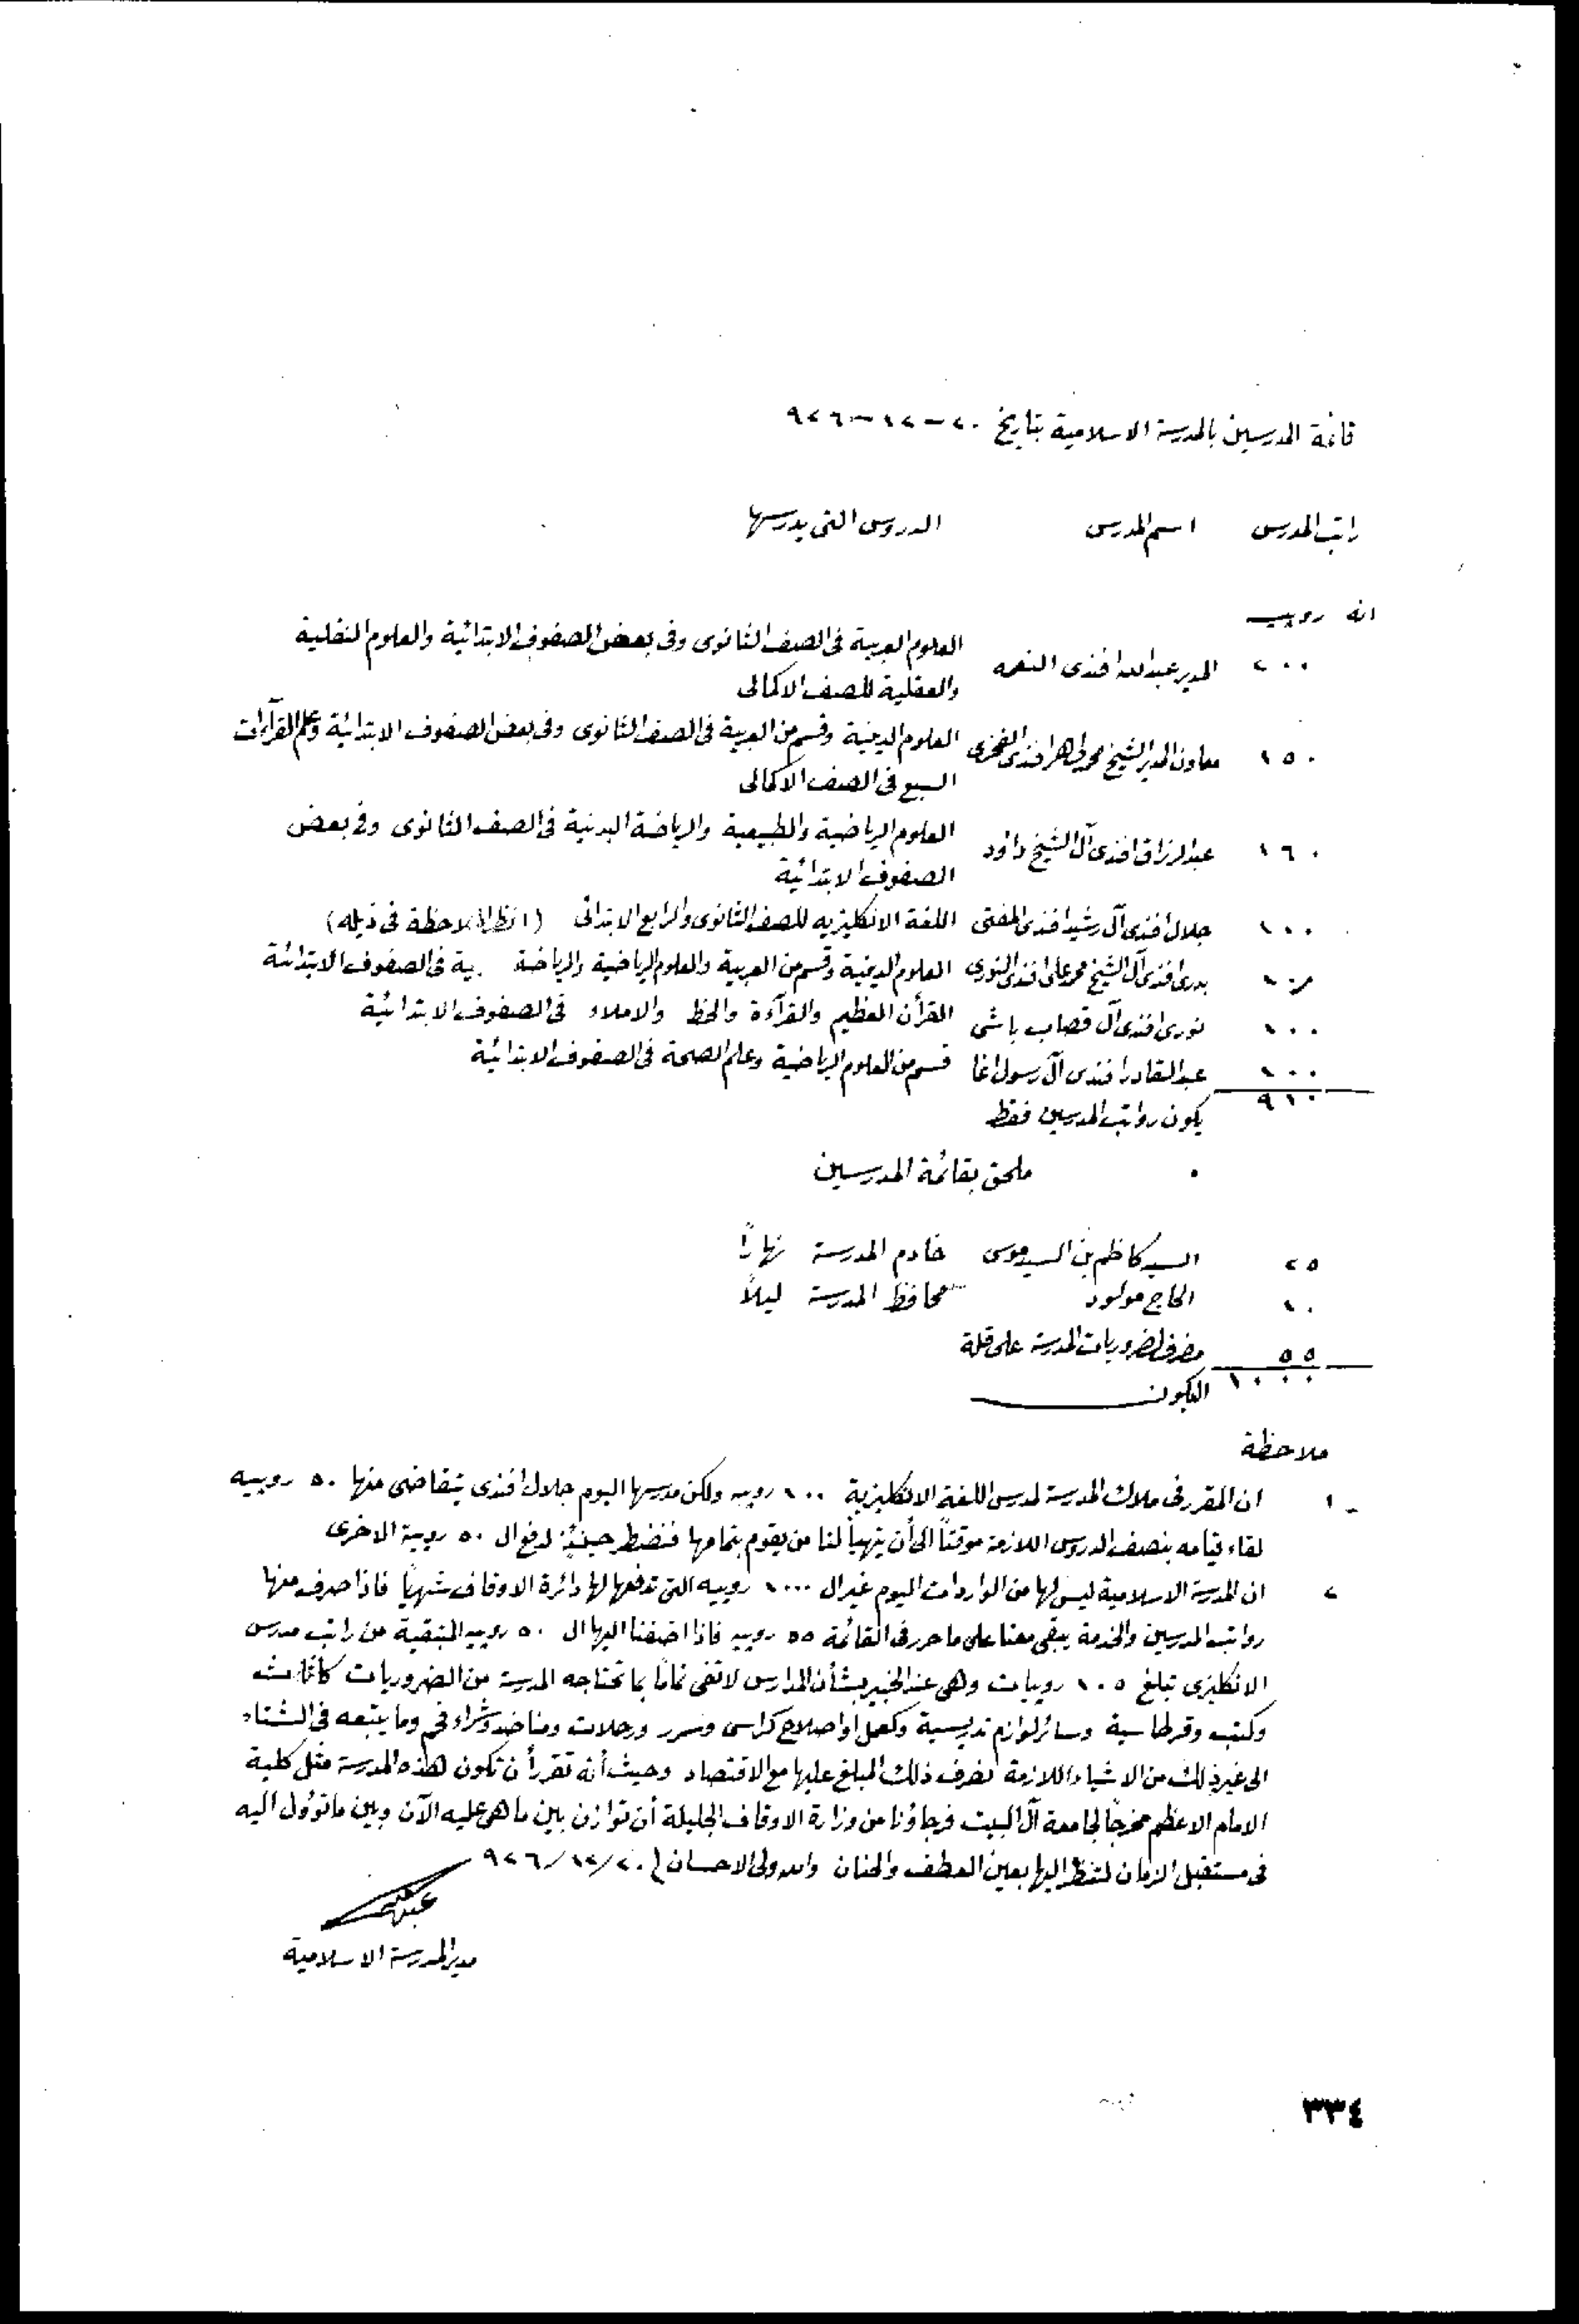 قائمة المدرسين بالمدرسة الاسلامية بتاريخ ٢٠-١٢-٩٢٦
راتب المدرس اسم المدرس الدروس التى يدرسها
انه روبيه
٢٠٠ المدير عبدالله افندى النعمه العلوم العربية فى الصف الثانوى وفى بعض الصفوف الابتدائية والعلوم النقلية
والعقلية للصف الاكمالى
١٥٠ معاون المدير الشيخ محمد طاهر افندى الفخرى العلوم الدينية وقسم من العربية فى الصف الثانوى وفى بعض الصفوف الابتدائية وعلم القرآءات
السبع فى الصف الاكمالى
١٦٠ عبدالرزاق افندى آل الشيخ داؤد العلوم الرياضية والطبيعية والرياضة البدنية فى الصف الثانوى وفى بعض
الصفوف الابتدائية
١٠٠ جلال افندى آل رشيد افندى المفتى اللغة الانكليزيه للصف الثانوى والرابع الابتدائى (انظر الملاحظة فى ذيله)
١٠٠ بدرى افندى آل الشيخ محمد على افندى النورى العلوم الدينية وقسم من العربية والعلوم الرياضية والرياضة ية فى الصفوف الابتدائية
١٠٠ نورى افندى آل قصاب باشى القرأن العظيم والقرآءة والخط والاملاء فى الصفوف الابتدائية
١٠٠ عبدالقادر افندى آل رسول اغا قسم من العلوم الرياضية وعلم الصحة فى الصفوف الابتدائية
٩١٠ يكون رواتب المدرسين فقط
ملحق بقائمة المدرسين
٢٥ السيد كاظم بن السيد موسى خادم المدرسة نهاراً
١٠ الحاج مولود محافظ المدرسة ليلاً
٥٥ مصرف لضروريات المدرسة على قلة
١٠٠٠ اليكون
ملاحظة
١- ان المقرر فى ملاك المدرسة لمدرس اللغة الانكليزية ١٠٠ روبيه ولكن مدرسها اليوم جلال افندى يتقاضى منها ٥٠ روبيه
لقاء قيامه بنصف الدروس اللازمة موقتاً الى أن يتهيأ لنا من يقوم بتمامها فنضطر حينئذٍ لدفع ال ٥٠ روبية الاخرى
٢ ان المدرسة الاسلامية ليس لها من الواردات اليوم غير ال ١٠٠٠ روبيه التى تدفعها لها دائرة الاوقاف شهرياً فاذا صرف منها
رواتب المدرسين والخدمة يبقى معنا على ما حرر فى القائمة ٥٥ روبيه فاذا اضفنا اليها ال ٥٠ روبيه المتبقية من راتب مدرس
الانكليزى تبلغ ١٠٥ روبيات وهى عند الخبير بشأن المدارس لاتفى تماماً بما تحتاجه المدرسة من الضروريات كأثاث
وكتب وقرطاسية وسائر لوازم تدريسية وكعمل او اصلاح كراسى وسرر ورحلات ومناضد وشراء فحم وما يتبعه فى الشتاء
الى غير ذلك من الاشياء اللازمة لصرف ذلك المبلغ عليها مع الاقتصاد وحيث أنه تقرر أن تكون هذه المدرسة مثل كلية
الامام الاعظم مخرجاً لجامعة آل البيت فرجاؤنا من وزارة الاوقاف الجليلة أن توازن بين ما هى عليه الآن وبين ما تؤول اليه
فى مستقبل الزمان لتنظر اليها بعين العطف والحنان والله ولى الاحسان ٢٠/١٢/٩٢٦
مدير المدرسة الاسلامية
٣٣٤